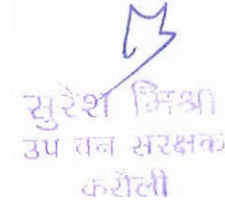 सुरेश मिश्रा
उप वन सरक्षक
करौली